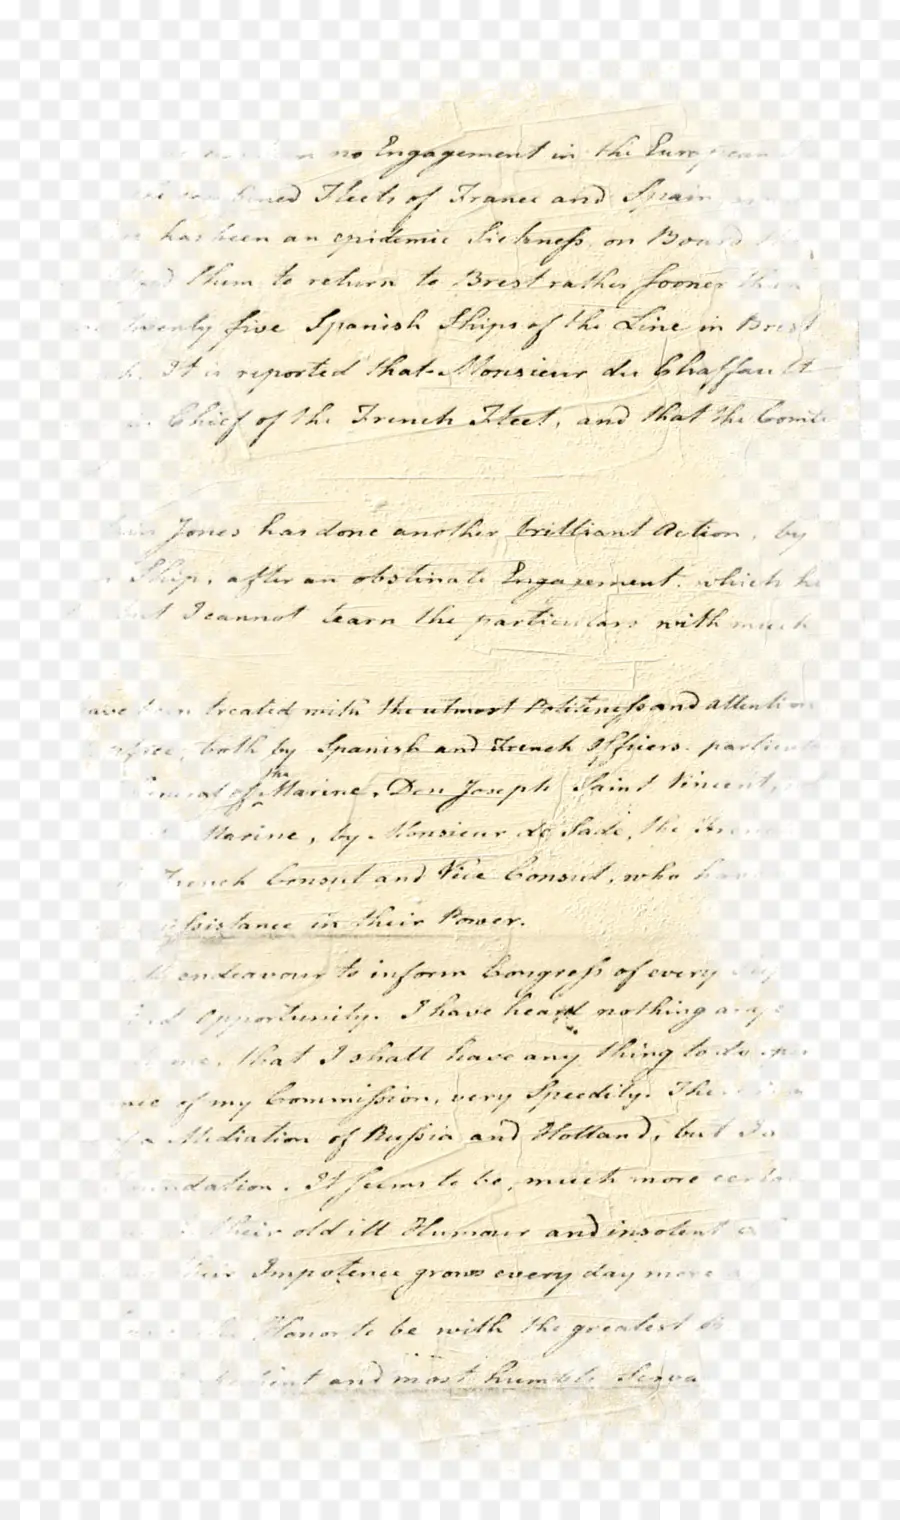 no Engagement in the European
combined Fleets of France and Spain
has been an epidemic Sickness, on Board
them to return to Brest rather sooner than
twenty five Spanish Ships of the Line in Brest
It is reported that Monsieur du Chaffault
Chief of the French Fleet, and that the Comte
Jones has done another brilliant Action, by
Ship, after an obstinate Engagement. which he
but I cannot learn the particulars with much
have been treated with the utmost Politeness and attention
both by Spanish and French Officers. particu
General of the Marine, Don Joseph Saint Vincent,
Marine, by Monsieur de Sade, the French
French Consul and Vice Consul, who have
assistance in their Power.
endeavour to inform Congress of every
Opportunity. I have heard nothing
me, that I shall have any thing to do
of my Commission, very Speedily. There is
of a Mediation of Russia and Holland, but
It seems to be, much more certain
their old ill Humour and insolent
their Impotence grows every day more
Honor to be with the greatest
and most humble Serva